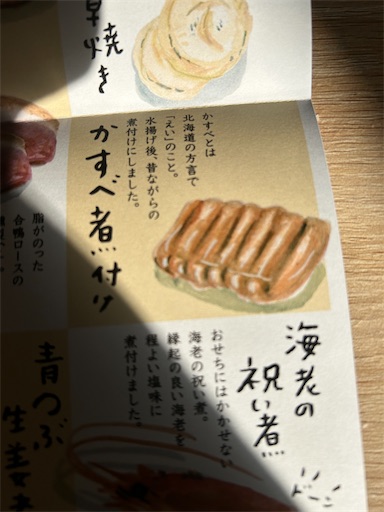 焼き
かすべ煮付け
かすべとは
北海道の方言で
「えい」のこと。
水揚げ後、昔ながらの
煮付けにしました。
脂がのった
合鴨ロースの
海老の
祝い煮
おせちにはかかせない
海老の祝い煮。
縁起の良い海老を
程よい塩味に
煮付けました。
青つぶ
生姜